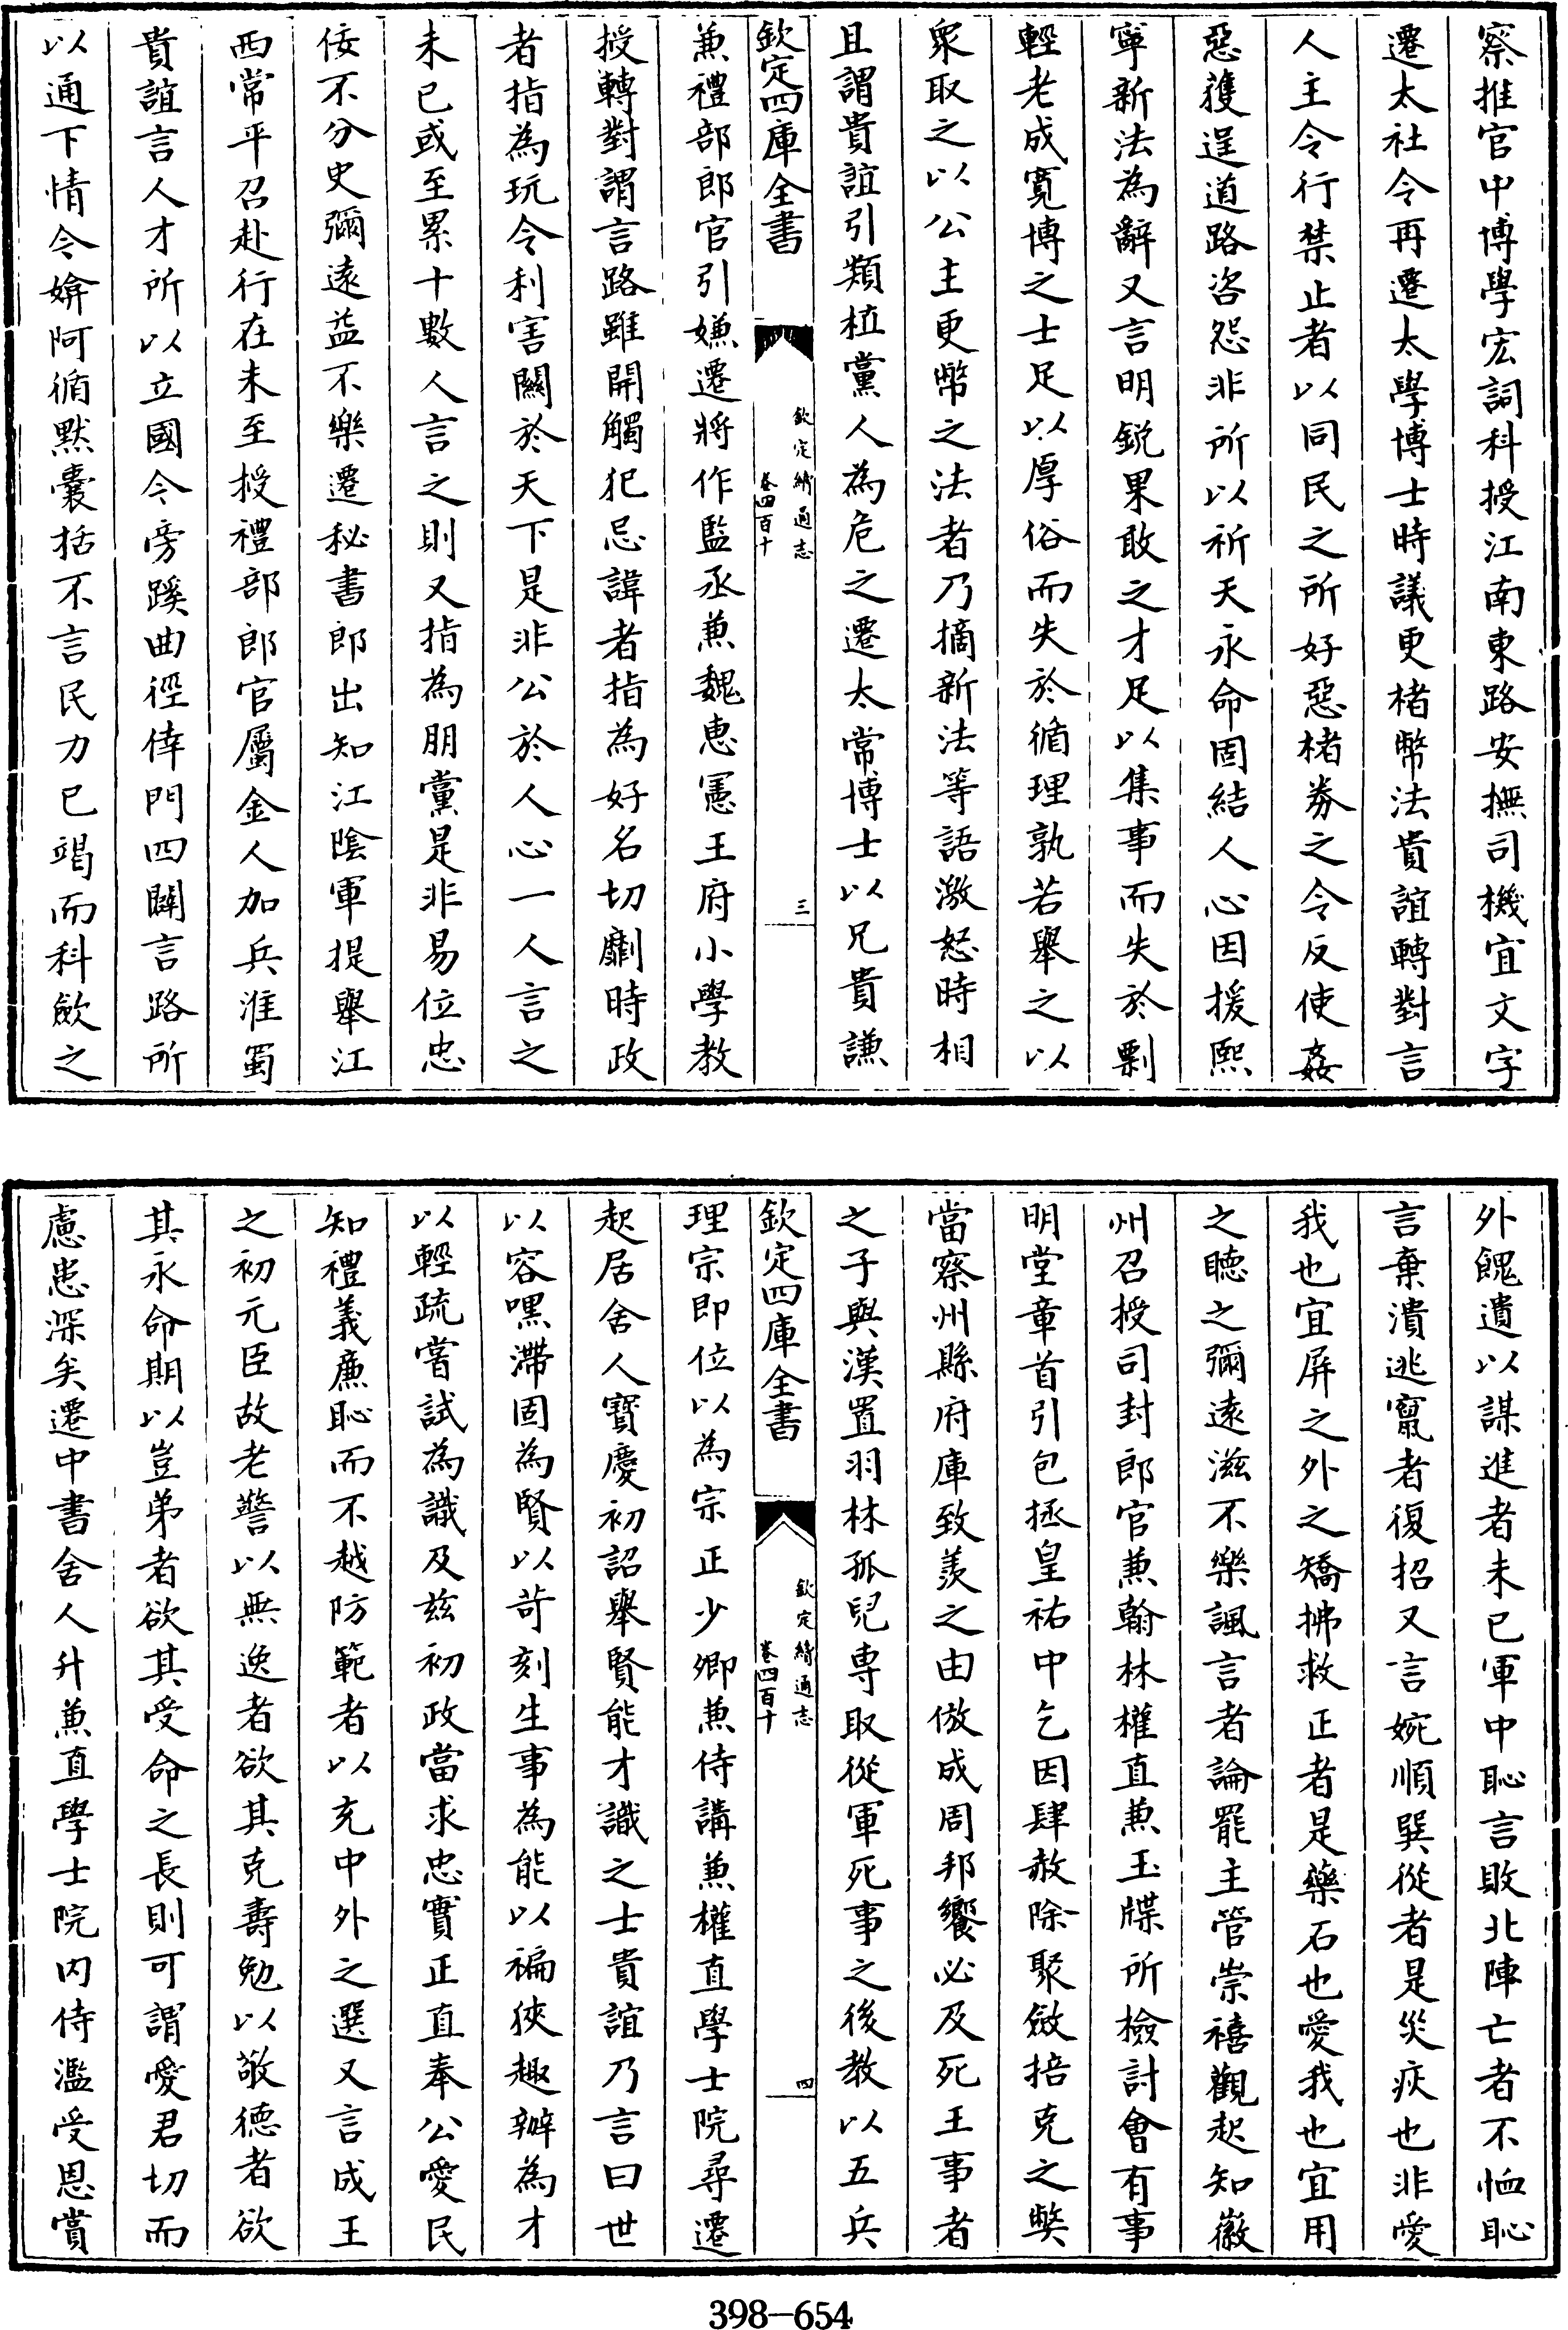 察推官中博學宏詞科授江南東路安撫司機宜文字
遷太社令再遷太學博士時議更楮幣法貴誼轉對言
人主令行禁止者以同民之所好惡楮券之令反使姦
惡獲逞道路咨怨非所以祈天永命固結人心因援熙
寧新法為辭又言明鋭果敢之才足以集事而失於剽
輕老成寛博之士足以厚俗而失於循理孰若舉之以
衆取之以公主更幣之法者乃摘新法等語激怒時相
且謂貴誼引類植黨人為危之遷太常博士以兄貴謙
欽定四庫全書
欽定續通志
卷四百十
三
兼禮部郎官引嫌遷將作監丞兼魏惠憲王府小學教
授轉對謂言路雖開觸犯忌諱者指為好名切劘時政
者指為玩令利害關於天下是非公於人心一人言之
未已或至累十數人言之則又指為朋黨是非易位忠
佞不分史彌遠益不樂遷秘書郎出知江陰軍提舉江
西常平召赴行在未至授禮部郎官屬金人加兵淮蜀
貴誼言人才所以立國今旁蹊曲徑倖門四闢言路所
以通下情今媕阿循默囊括不言民力已竭而科歛之
外餽遺以謀進者未已軍中恥言敗北陣亡者不恤恥
言棄潰逃竄者復招又言婉順巽從者是災疢也非愛
我也宜屏之外之矯拂救正者是藥石也愛我也宜用
之聽之彌遠滋不樂諷言者論罷主管崇禧觀起知徽
州召授司封郎官兼翰林權直兼玉牒所檢討會有事
明堂章首引包拯皇祐中乞因肆赦除聚斂掊克之獘
當察州縣府庫致羨之由倣成周邦饗必及死王事者
之子與漢置羽林孤兒專取從軍死事之後教以五兵
欽定四庫全書
欽定續通志
卷四百十
四
理宗即位以為宗正少卿兼侍講兼權直學士院尋遷
起居舍人寶慶初詔舉賢能才識之士貴誼乃言曰世
以容嘿滯固為賢以苛刻生事為能以褊狹趣辦為才
以輕疏嘗試為識及兹初政當求忠實正直奉公愛民
知禮義廉恥而不越防範者以充中外之選又言成王
之初元臣故老警以無逸者欲其克壽勉以敬德者欲
其永命期以豈弟者欲其受命之長則可謂愛君切而
慮患深矣遷中書舍人升兼直學士院内侍濫受恩賞
398—654